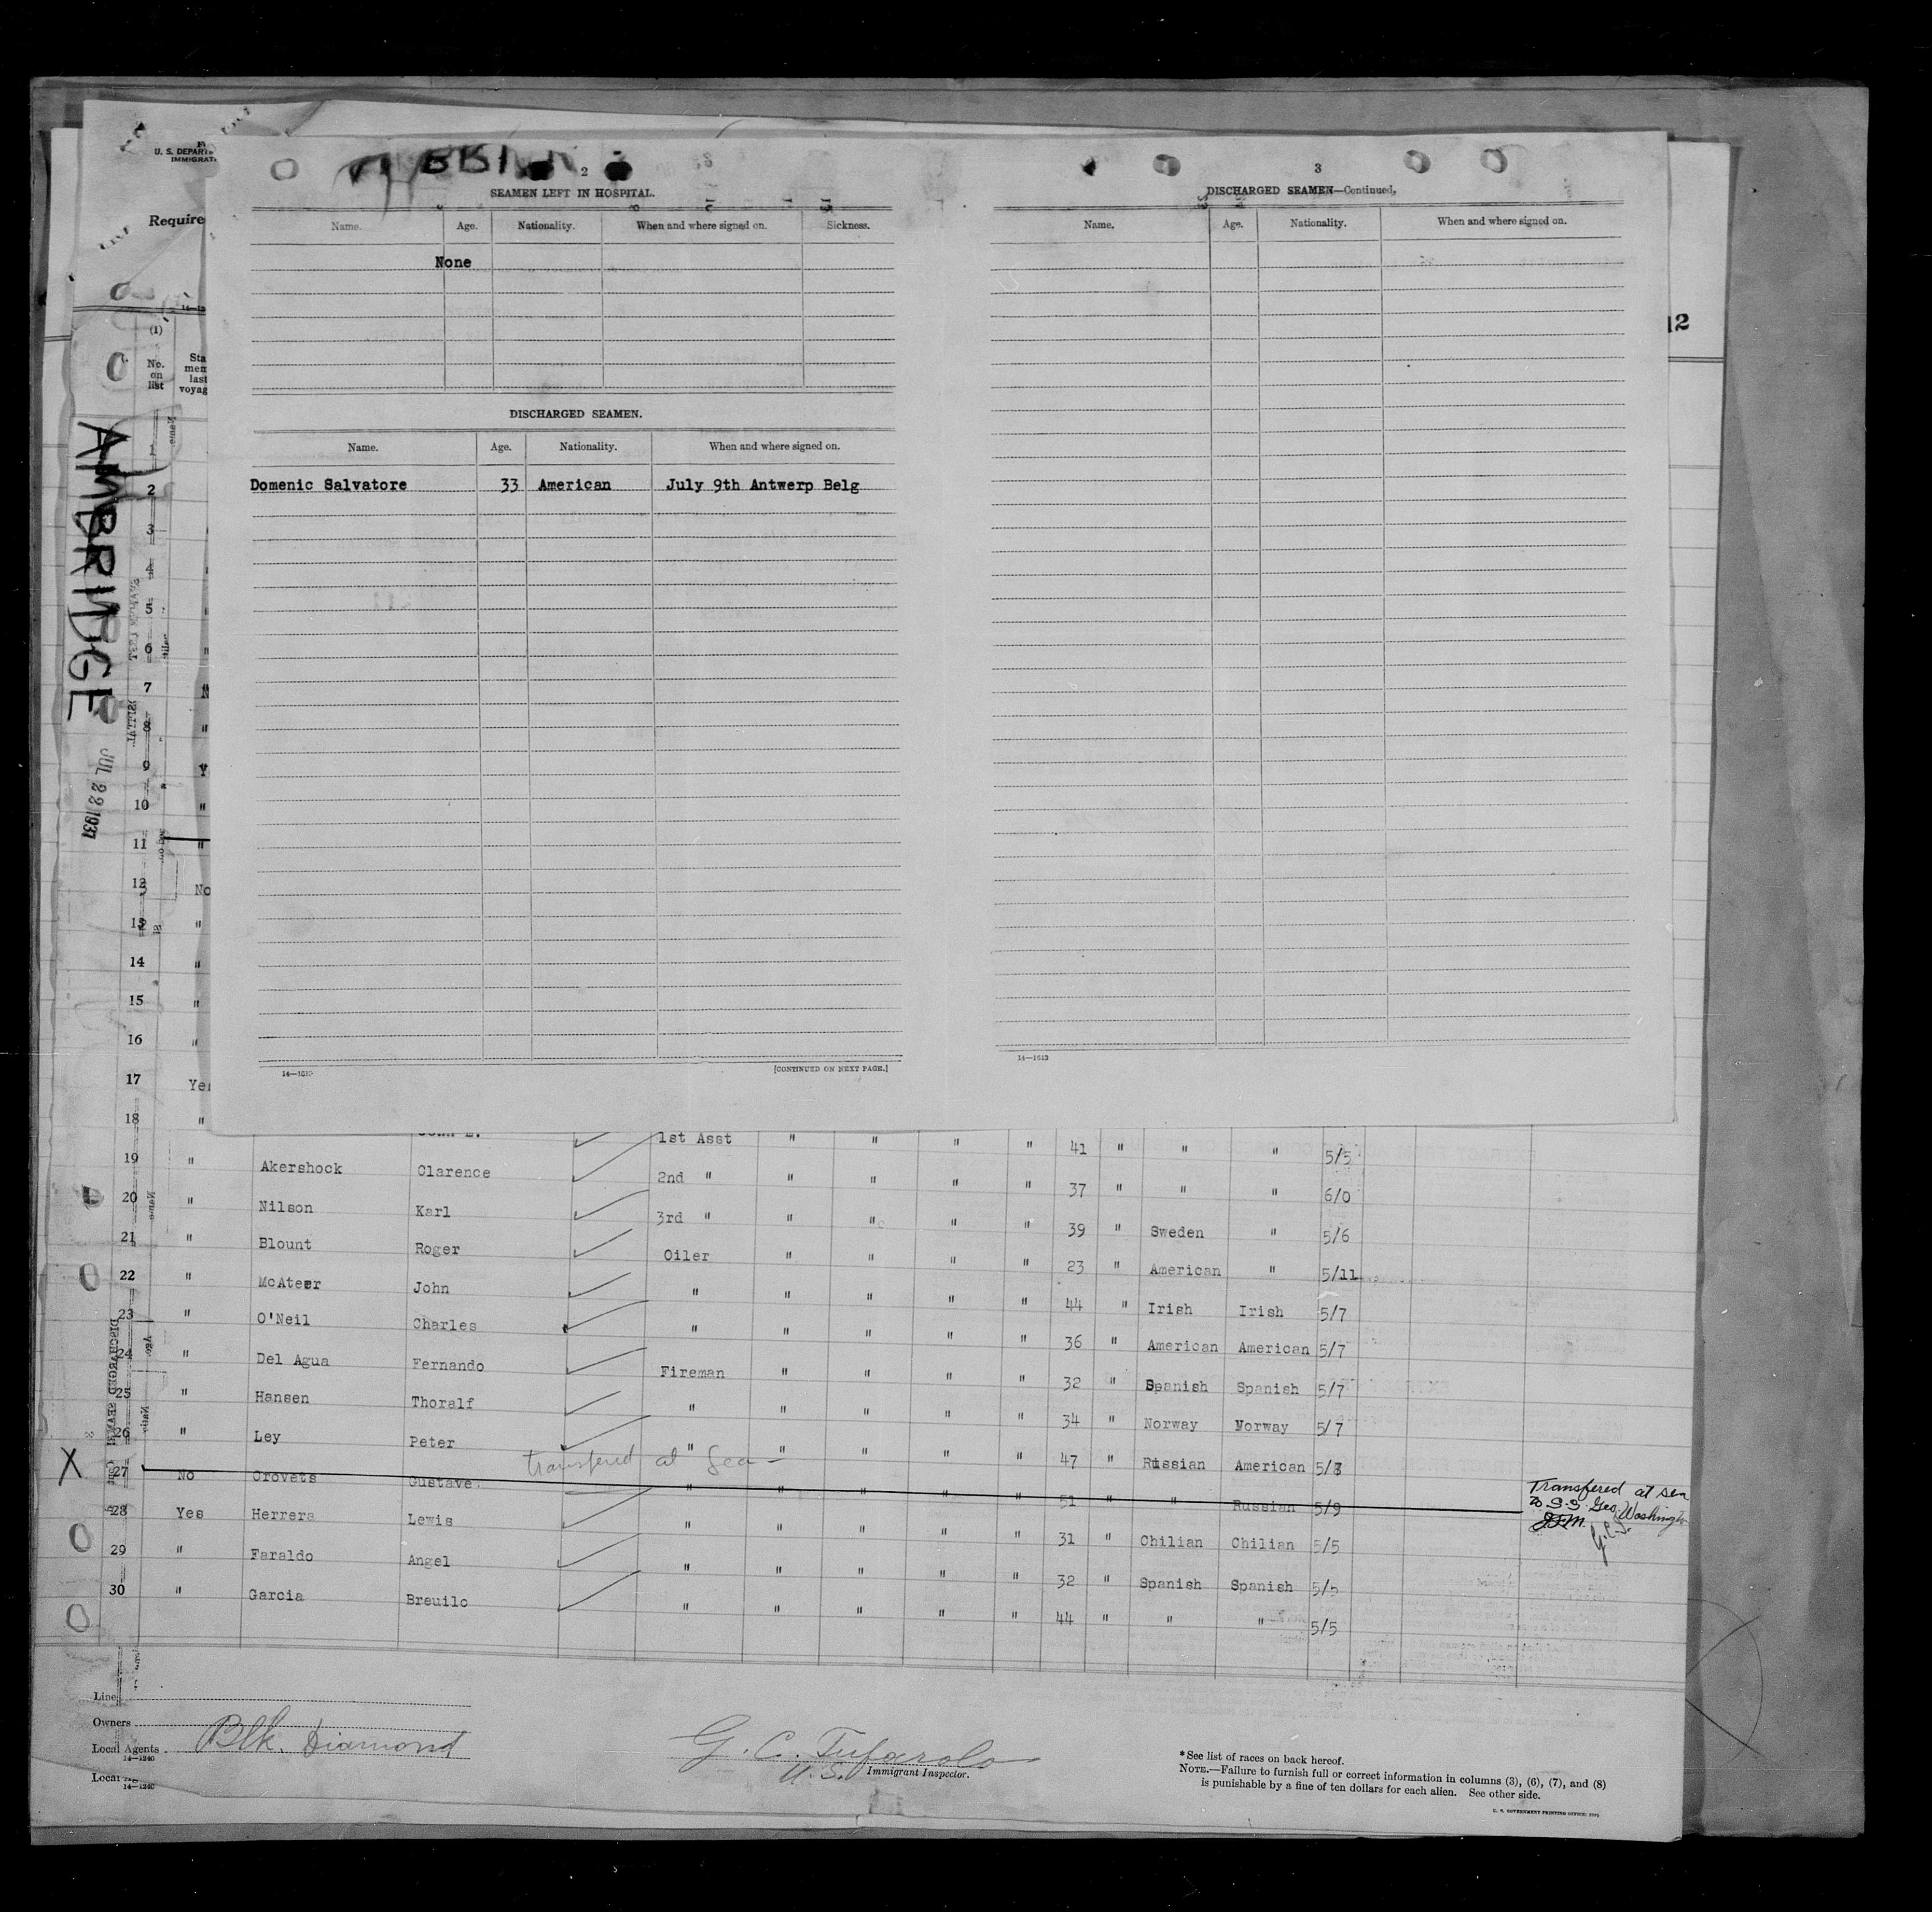 U. S. DEPART
IMMIGRAT
Require
2
SEAMEN LEFT IN HOSPITAL.
Name. Age. Nationality. When and where signed on. Sickness.
None
DISCHARGED SEAMEN.
Name. Age. Nationality. When and where signed on.
Domenic Salvatore 33 American July 9th Antwerp Belg
14—1613 [CONTINUED ON NEXT PAGE.]
3
DISCHARGED SEAMEN—Continued.
Name. Age. Nationality. When and where signed on.
14—1613
12
(1)
No. on list
AMBRIDGE
JUL 22 1937
1
2
3
4
5 "
6 "
7
8 "
9 Y
10 "
11 "
12 No
13 "
14 "
15 "
16 "
17 Yes
18 " 1st Asst " " " " 41 " " " 5/5
19 " Akershock Clarence 2nd " " " " " 37 " " " 6/0
20 " Nilson Karl 3rd " " " " " 39 " Sweden " 5/6
21 " Blount Roger Oiler " " " " 23 " American " 5/11
22 " McAteer John " " " " " 44 " Irish Irish 5/7
23 " O'Neil Charles " " " " " 36 " American American 5/7
24 " Del Agua Fernando Fireman " " " " 32 " Spanish Spanish 5/7
25 " Hansen Thoralf " " " " " 34 " Norway Norway 5/7
26 " Ley Peter " " " " " 47 " Russian American 5/8
Transfered at Sea —
X 27 No Orovets Gustave " " " " " 51 " " Russian 5/9
Transfered at sea
to S.S. Geo. Washington
J.F.M. G.C.T.
28 Yes Herrera Lewis " " " " " 31 " Chilian Chilian 5/5
29 " Faraldo Angel " " " " " 32 " Spanish Spanish 5/5
30 " Garcia Breuilo " " " " " 44 " " " 5/5
Line
Owners
Local Agents Blk. Diamond
14—1240
Local
14—1240
G. C. Tufarolo
U.S. Immigrant Inspector.
*See list of races on back hereof.
NOTE.—Failure to furnish full or correct information in columns (3), (6), (7), and (8)
is punishable by a fine of ten dollars for each alien. See other side.